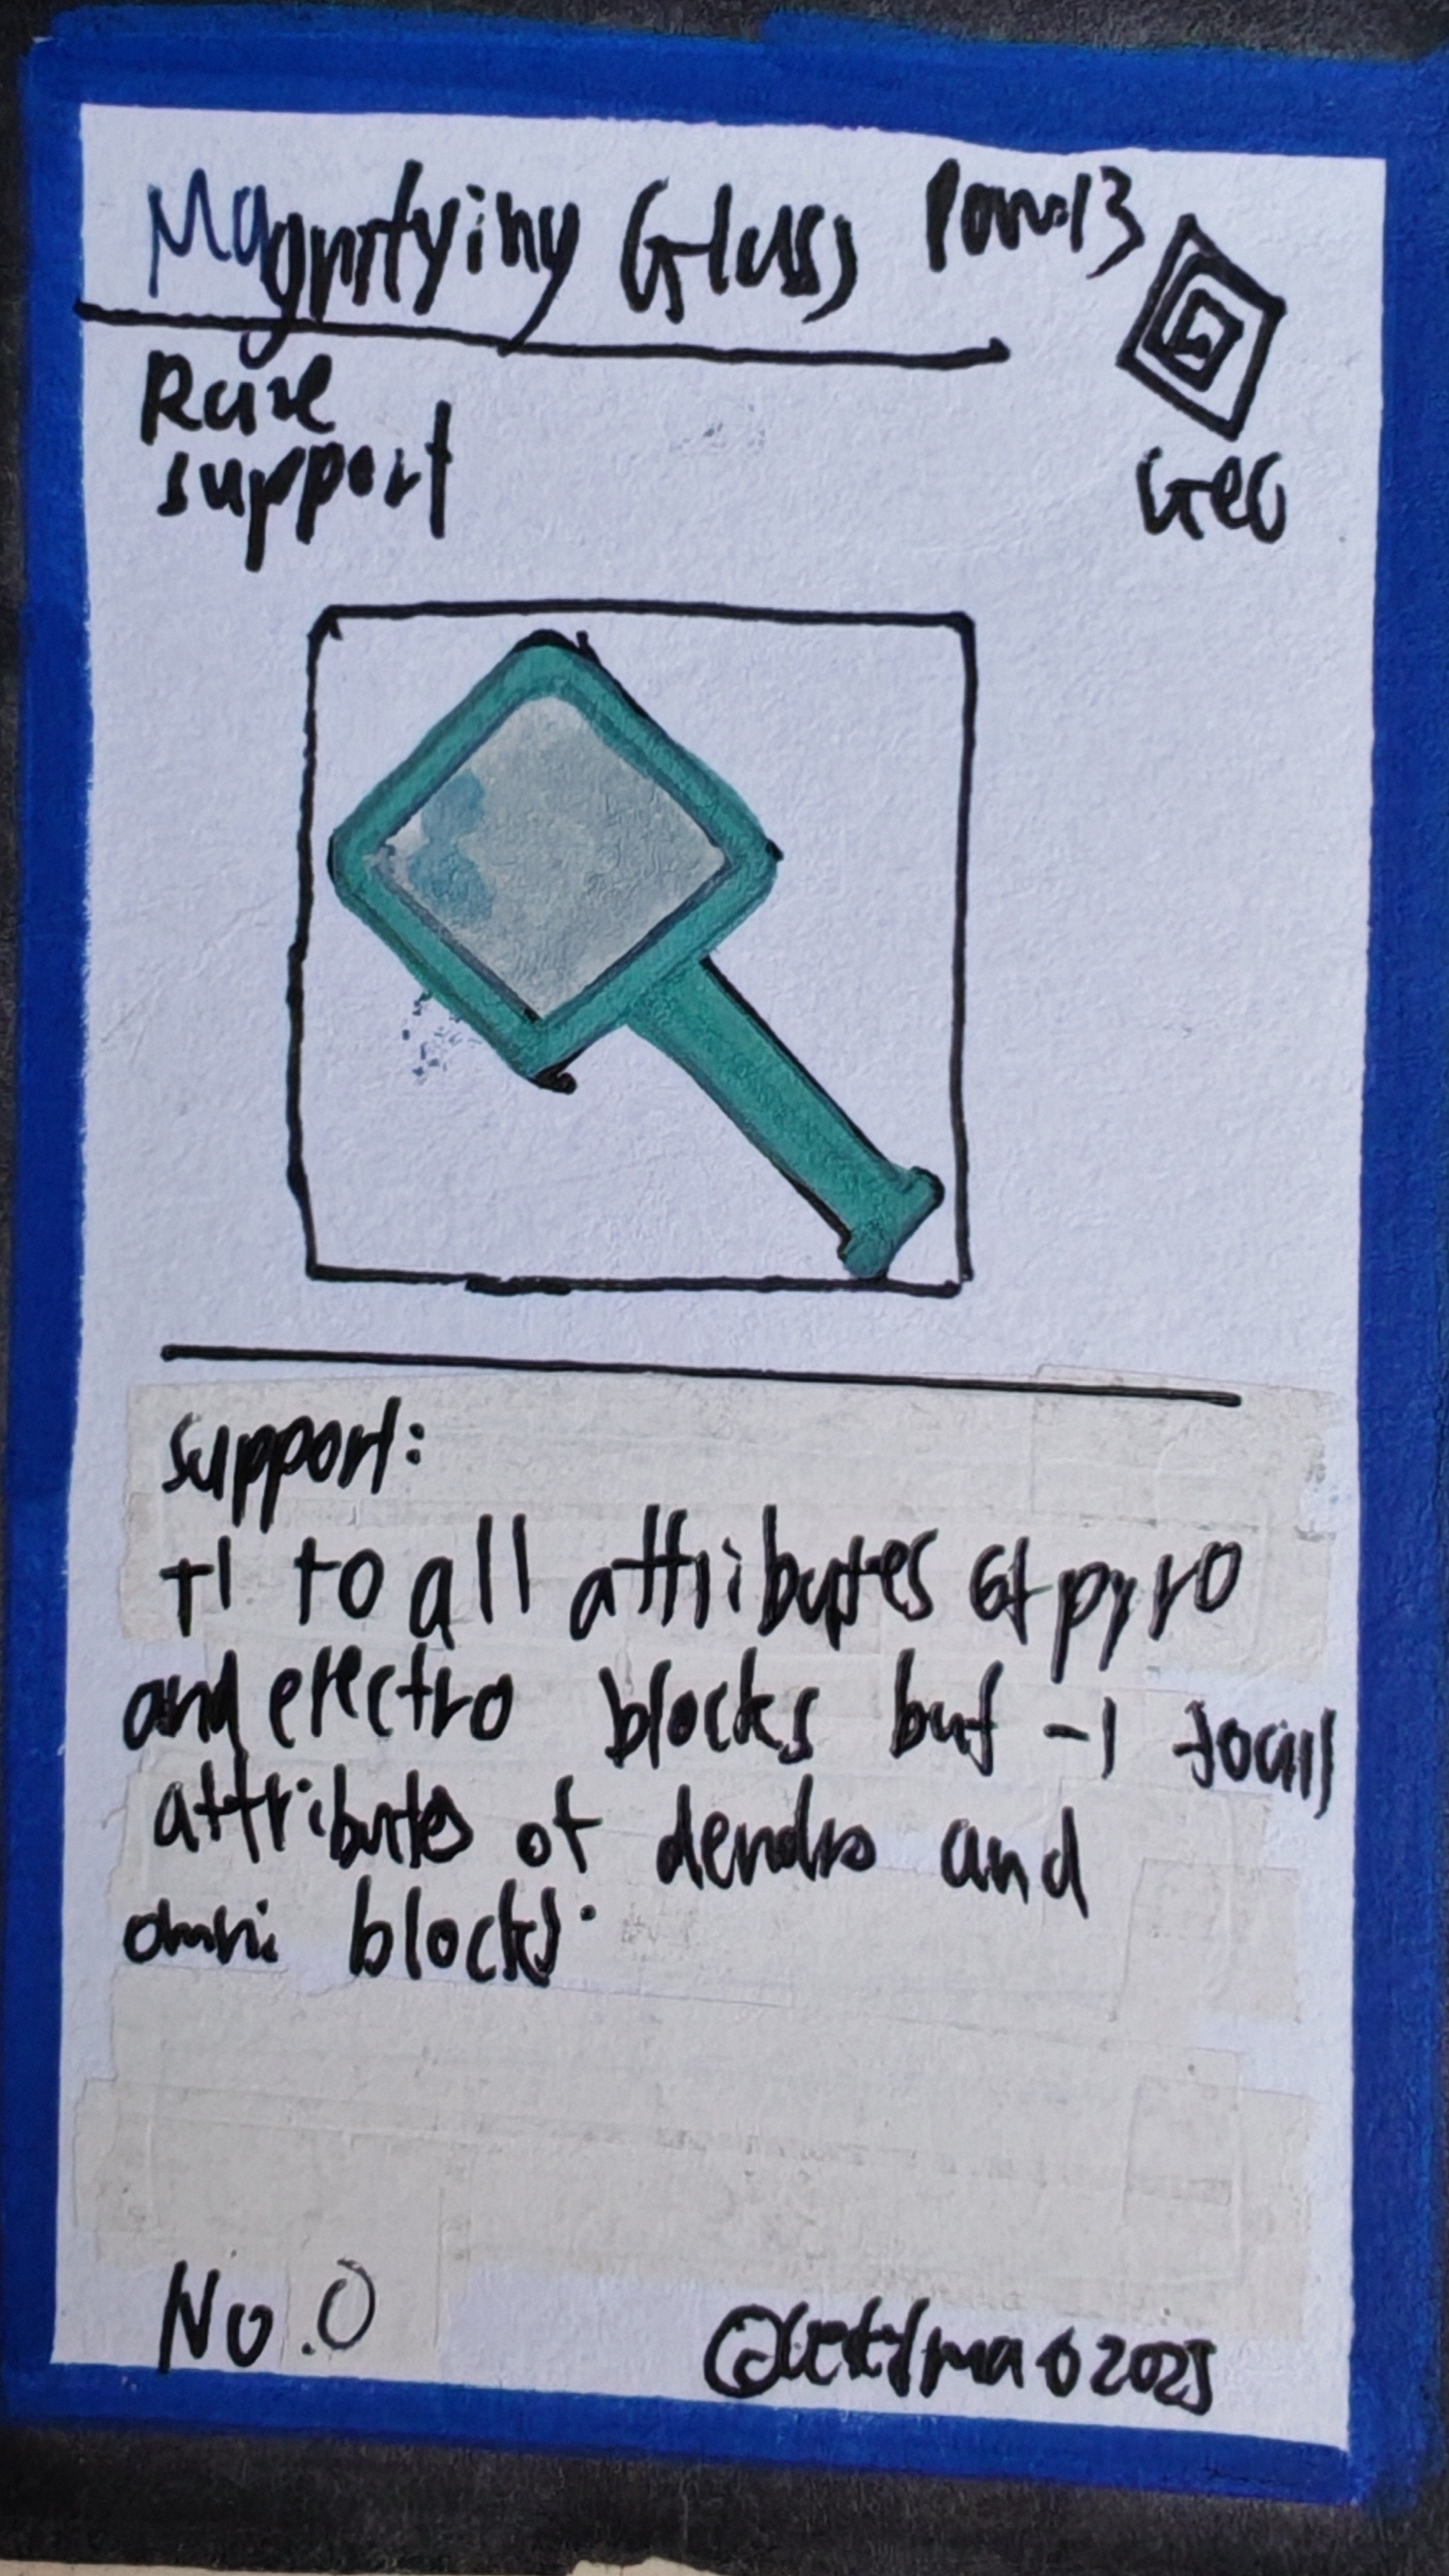 Magnifying Glass
Rare
support
Geo
support:
+1 to all attributes of pyro
and electro blocks but -1 to all
attributes of dendro and
omni blocks.
No.0
2025